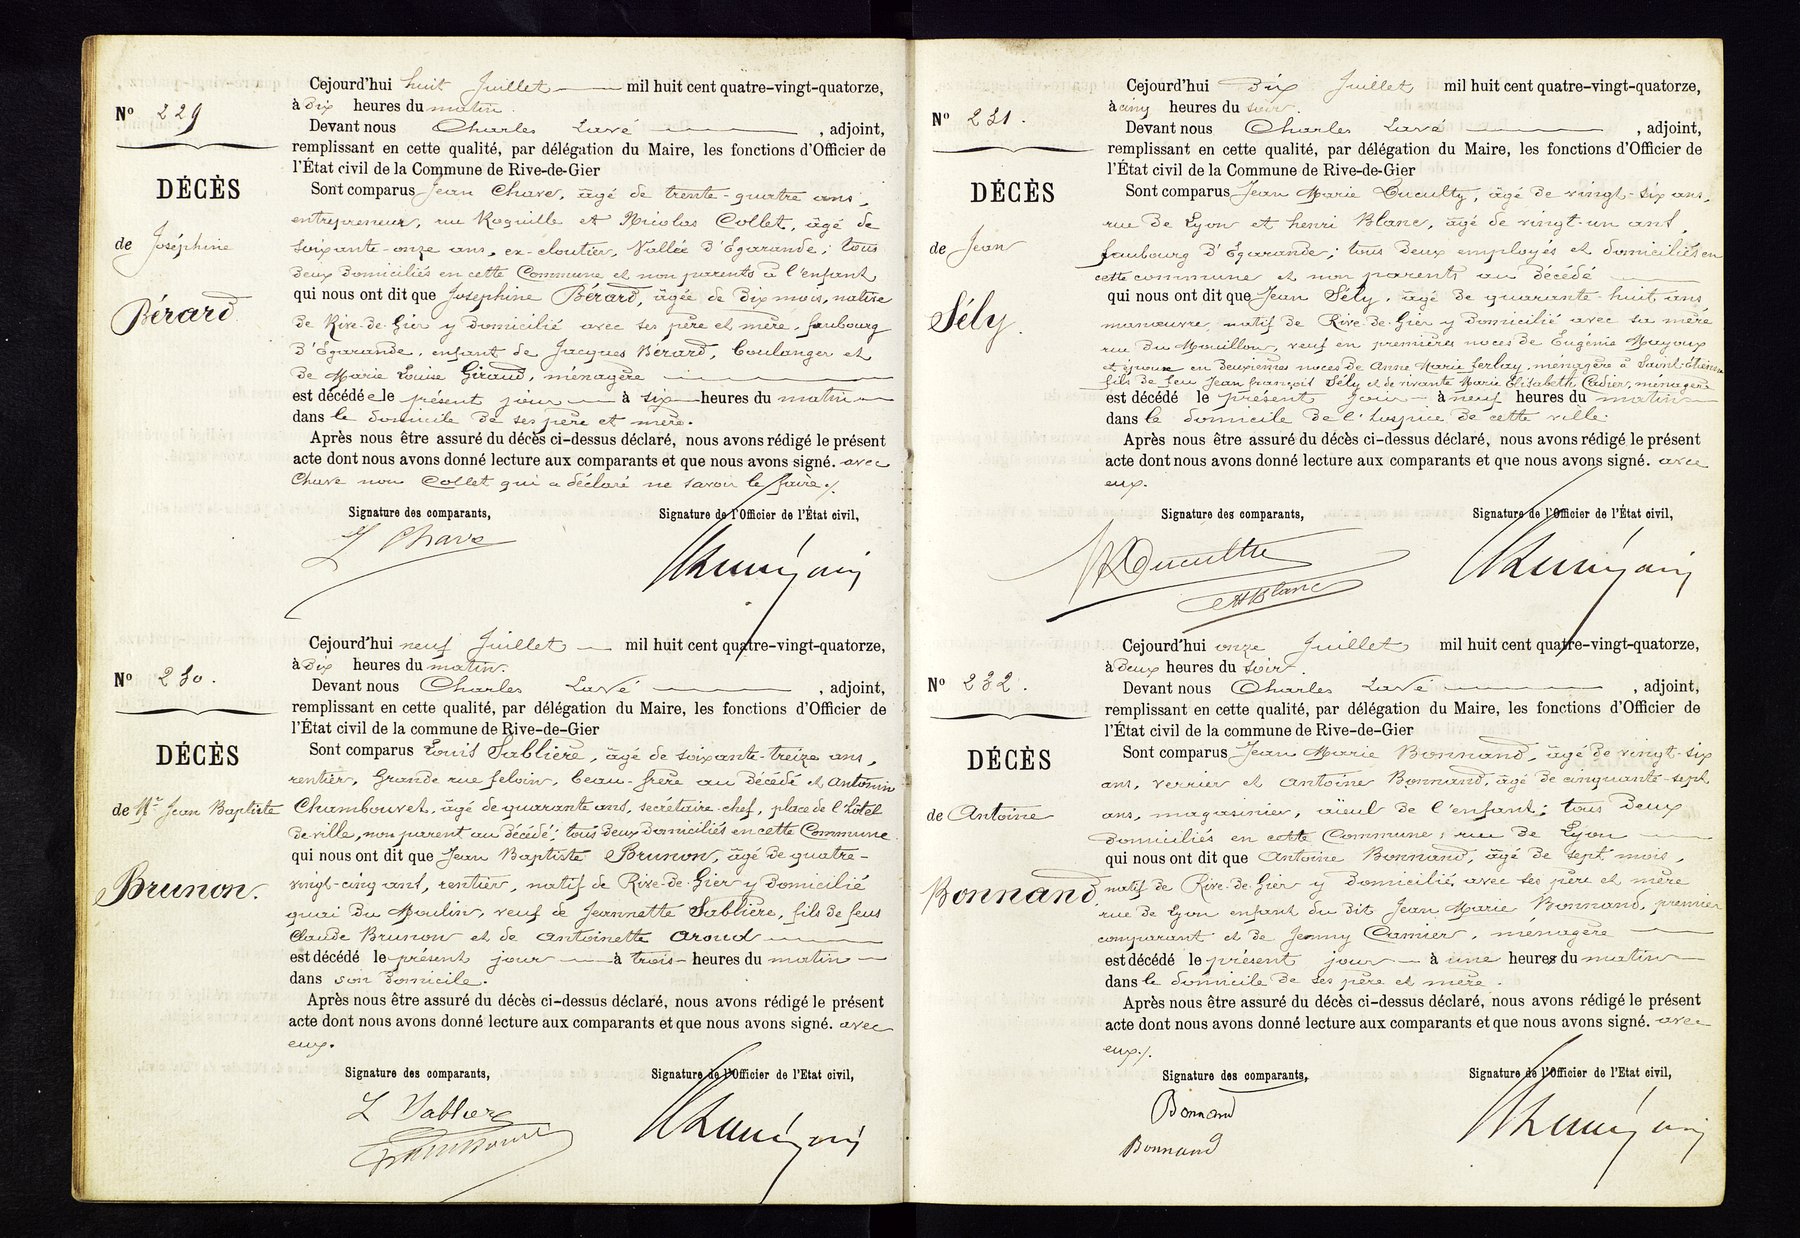 Cejourd'hui huit Juillet mil huit cent quatre-vingt-quatorze,
à dix heures du matin.
N° 229
Devant nous Charles Lavé, adjoint,
remplissant en cette qualité, par délégation du Maire, les fonctions d'Officier de
l'État civil de la Commune de Rive-de-Gier
DÉCÈS
Sont comparus Jean Chave, âgé de trente-quatre ans,
entrepreneur, rue Roquille et Nicolas Collet, âgé de
de Joséphine
soixante-onze ans, ex-cloutier, Vallée d'Egarande; tous
deux domiciliés en cette Commune et non parents à l'enfant
qui nous ont dit que Joséphine Bérard, âgée de dix mois, native
Bérard
de Rive-de-Gier y domicilié avec ses père et mère, faubourg
d'Egarande, enfant de Jacques Bérard, boulanger et
de Marie Louise Giraud, ménagère
est décédée le présent jour à six heures du matin
dans le domicile de ses père et mère.
Après nous être assuré du décès ci-dessus déclaré, nous avons rédigé le présent
acte dont nous avons donné lecture aux comparants et que nous avons signé. avec
Chave non Collet qui a déclaré ne savoir le faire./.
Signature des comparants, Signature de l'Officier de l'État civil,
Chave
Cejourd'hui neuf Juillet mil huit cent quatre-vingt-quatorze,
à dix heures du matin.
N° 230.
Devant nous Charles Lavé, adjoint,
remplissant en cette qualité, par délégation du Maire, les fonctions d'Officier de
l'État civil de la commune de Rive-de-Gier
DÉCÈS
Sont comparus Louis Sablière, âgé de soixante-treize ans,
rentier, Grande rue feloin, beau-frère au décédé et Antonin
de Mr Jean Baptiste
Chambouvet, âgé de quarante ans, secrétaire-chef, place de l'hôtel
de-ville, non parent au décédé; tous deux domiciliés en cette Commune
qui nous ont dit que Jean Baptiste Brunon, âgé de quatre-
Brunon.
vingt-cinq ans, rentier, natif de Rive-de-Gier y domicilié
quai du Moulin, veuf de Jeannette Sablière, fils de feus
Claude Brunon et de Antoinette Aroud
est décédé le présent jour à trois heures du matin
dans son domicile.
Après nous être assuré du décès ci-dessus déclaré, nous avons rédigé le présent
acte dont nous avons donné lecture aux comparants et que nous avons signé. avec
eux.
Signature des comparants, Signature de l'Officier de l'Etat civil,
L Sablière
Cejourd'hui Dix Juillet mil huit cent quatre-vingt-quatorze,
à cinq heures du soir.
N° 231.
Devant nous Charles Lavé, adjoint,
remplissant en cette qualité, par délégation du Maire, les fonctions d'Officier de
l'État civil de la Commune de Rive-de-Gier
DÉCÈS
Sont comparus Jean Marie Ducultÿ, âgé de vingt-six ans,
rue de Lyon et henri Blanc, âgé de vingt-un ans,
de Jean
faubourg d'Egarande; tous deux employés et domiciliés en
cette commune et non parents au décédé
qui nous ont dit que Jean Sély, âgé de quarante-huit ans
Sély.
manœuvre, natif de Rive-de-Gier y domicilié avec sa mère
rue du Mouillon, veuf en premières noces de Eugénie Mayoux
et époux en deuxièmes noces de Anne Marie ferlay, ménagère à Saint-Etienne
fils de feu Jean françois Sély et de vivante Marie Elisabeth Cadier, ménagère
est décédé le présent jour à neuf heures du matin
dans le domicile de l'hospice de cette ville.
Après nous être assuré du décès ci-dessus déclaré, nous avons rédigé le présent
acte dont nous avons donné lecture aux comparants et que nous avons signé. avec
eux.
Signature des comparants, Signature de l'Officier de l'État civil,
Ducultÿ
H Blanc
Cejourd'hui onze Juillet mil huit cent quatre-vingt-quatorze,
à deux heures du soir.
N° 232.
Devant nous Charles Lavé, adjoint,
remplissant en cette qualité, par délégation du Maire, les fonctions d'Officier de
l'État civil de la Commune de Rive-de-Gier
DÉCÈS
Sont comparus Jean Marie Bonnand, âgé de vingt-six
ans, verrier et Antoine Bonnand, âgé de cinquante-sept
de Antoine
ans, magasinier, aïeul de l'enfant; tous deux
domiciliés en cette Commune, rue de Lyon
qui nous ont dit que Antoine Bonnand, âgé de sept mois,
Bonnand.
natif de Rive-de-Gier y domicilié, avec ses père et mère
rue de Lyon enfant du dit Jean Marie Bonnand, premier
comparant et de Jenny Camier, ménagère
est décédé le présent jour à une heures du matin
dans le domicile de ses père et mère.
Après nous être assuré du décès ci-dessus déclaré, nous avons rédigé le présent
acte dont nous avons donné lecture aux comparants et que nous avons signé. avec
eux./.
Signature des comparants, Signature de l'Officier de l'Etat civil,
Bonnand
Bonnand